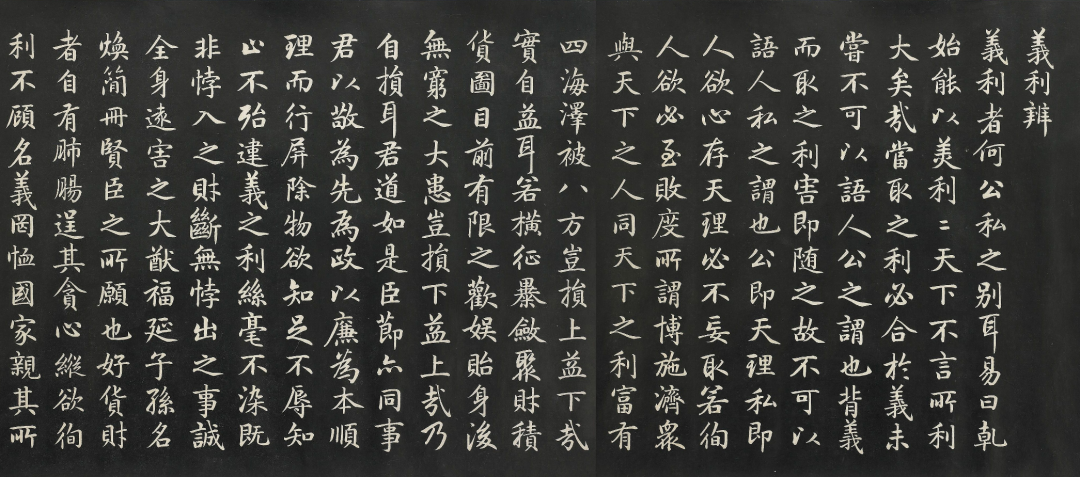 義利辨
義利者何公私之别耳易曰乹
始能以美利〻天下不言所利
大矣哉當取之利必合於義未
嘗不可以語人公之謂也背義
而取之利害即随之故不可以
語人私之謂也公即天理私即
人欲心存天理必不妄取若徇
人欲必至敗度所謂博施濟衆
與天下之人同天下之利富有
四海澤被八方豈損上益下哉
實自益耳若橫征暴斂聚財積
貨圖目前有限之歡娱貽身後
無窮之大患豈損下益上哉乃
自損耳君道如是臣節亦同事
君以敬為先為政以廉為本順
理而行屏除物欲知足不辱知
止不殆違義之利絲毫不染既
非悖入之財斷無悖出之事誠
全身遠害之大猷福延子孫名
煥簡冊賢臣之所願也好貨財
者自有肺腸逞其貪心縱欲徇
利不顧名義罔恤國家親其所